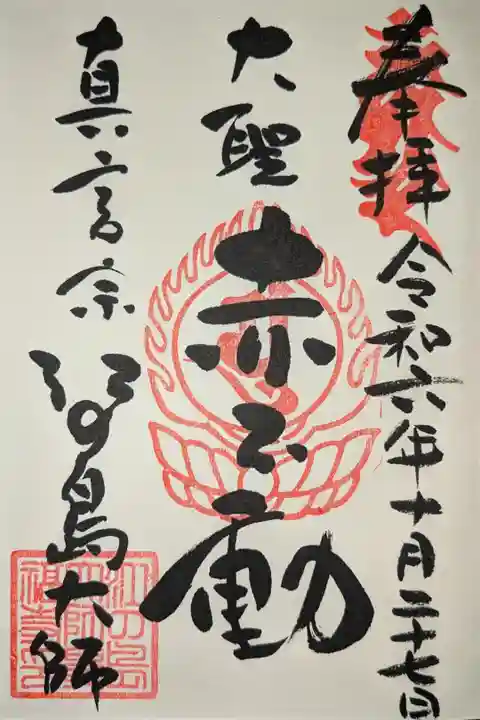 奉拝 令和六年十月二十七日
大聖
赤不動
真言宗
江の島大師